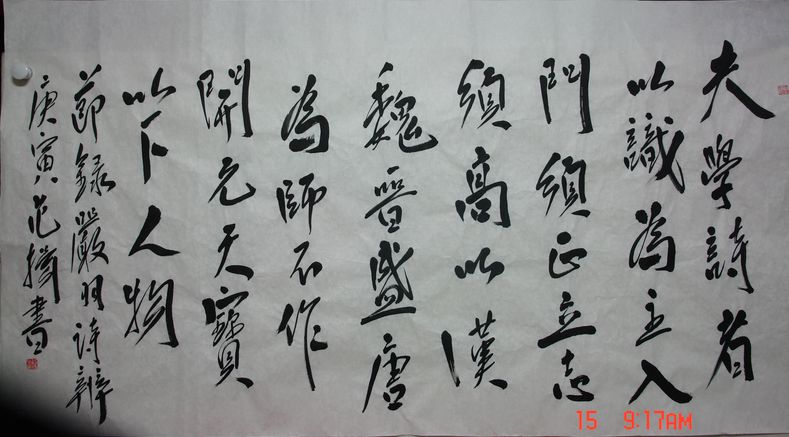 夫學詩者
以識為主入
門須正立志
須高以漢
魏晉盛唐
為師不作
開元天寶
以下人物
節錄嚴羽詩辯
庚寅范擣書
15 9:17AM